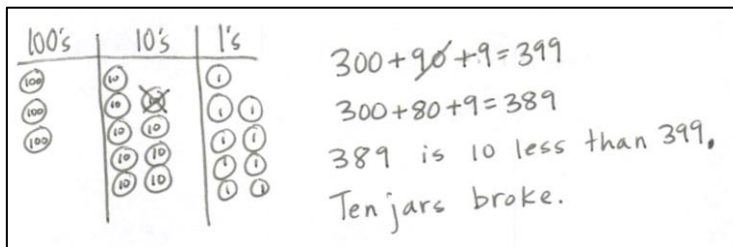 100's 10's 1's
100 10 1
100 10 10 1 1
100 10 10 1 1
10 10 1 1
10 10 1 1
300+90+9=399
300+80+9=389
389 is 10 less than 399.
Ten jars broke.